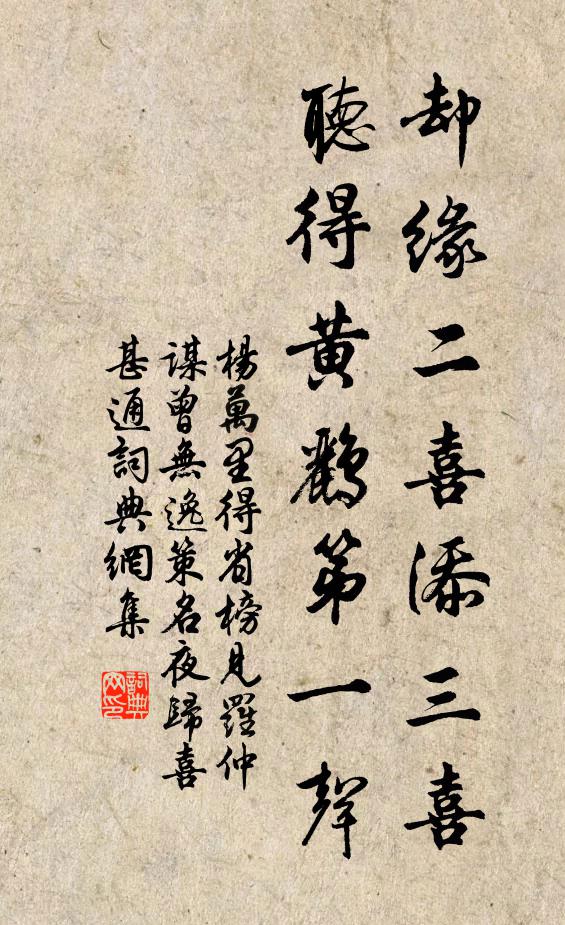 却緣二喜添三喜
聽得黃鸝第一聲
楊萬里得省榜見羅仲
謀曾無逸策名夜歸喜
甚通詞典網集
詞典
网印